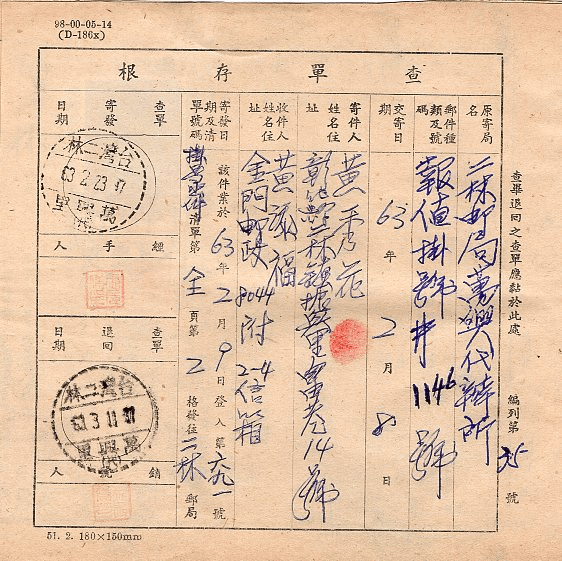 98-00-05-14
(D-186x)
查單存根
查畢退回之查單應黏於此處　編列第 35 號
原寄局名 二林郵局萬興代辦所
郵件種類及號碼 報值掛號 井 1146 號
交寄日期 63 年 2 月 8 日
寄件人姓名住址 黃秀花
彰化縣二林鎮振興里 巷 14 號
收件人姓名住址 黃 福
金門郵政 8044 附 2-4 信箱
寄發日期及清單號碼 該件業於 63 年 2 月 9 日登入第 六九一 號
掛號 清單第 全 頁第 2 格發往 二林 郵局
查單寄發日期
台灣二林
63 2 23 17
萬興
經手人
查單退回日期
台灣二林
63 3 11 17
萬興
銷號人
51. 2. 180×150mm